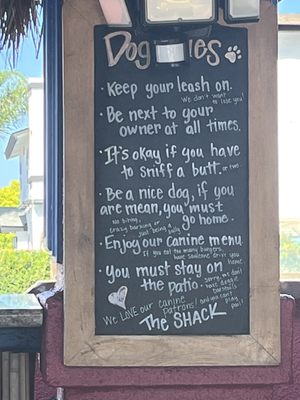 Dog
· Keep your leash on.
We don't want
to lose you!
· Be next to your
owner at all times.
· It's okay if you have
to sniff a butt. or two.
· Be a nice dog, if you
are mean, you must
go home.
No biting,
crazy barking or
just being bully
· Enjoy our canine menu
If you eat too many burgers,
have someone drive you
home.
· you must stay on
the patio.
sorry, we don't
have doggie
barstools
and you can't play
pool!
We LOVE our canine
patrons!
The SHACK